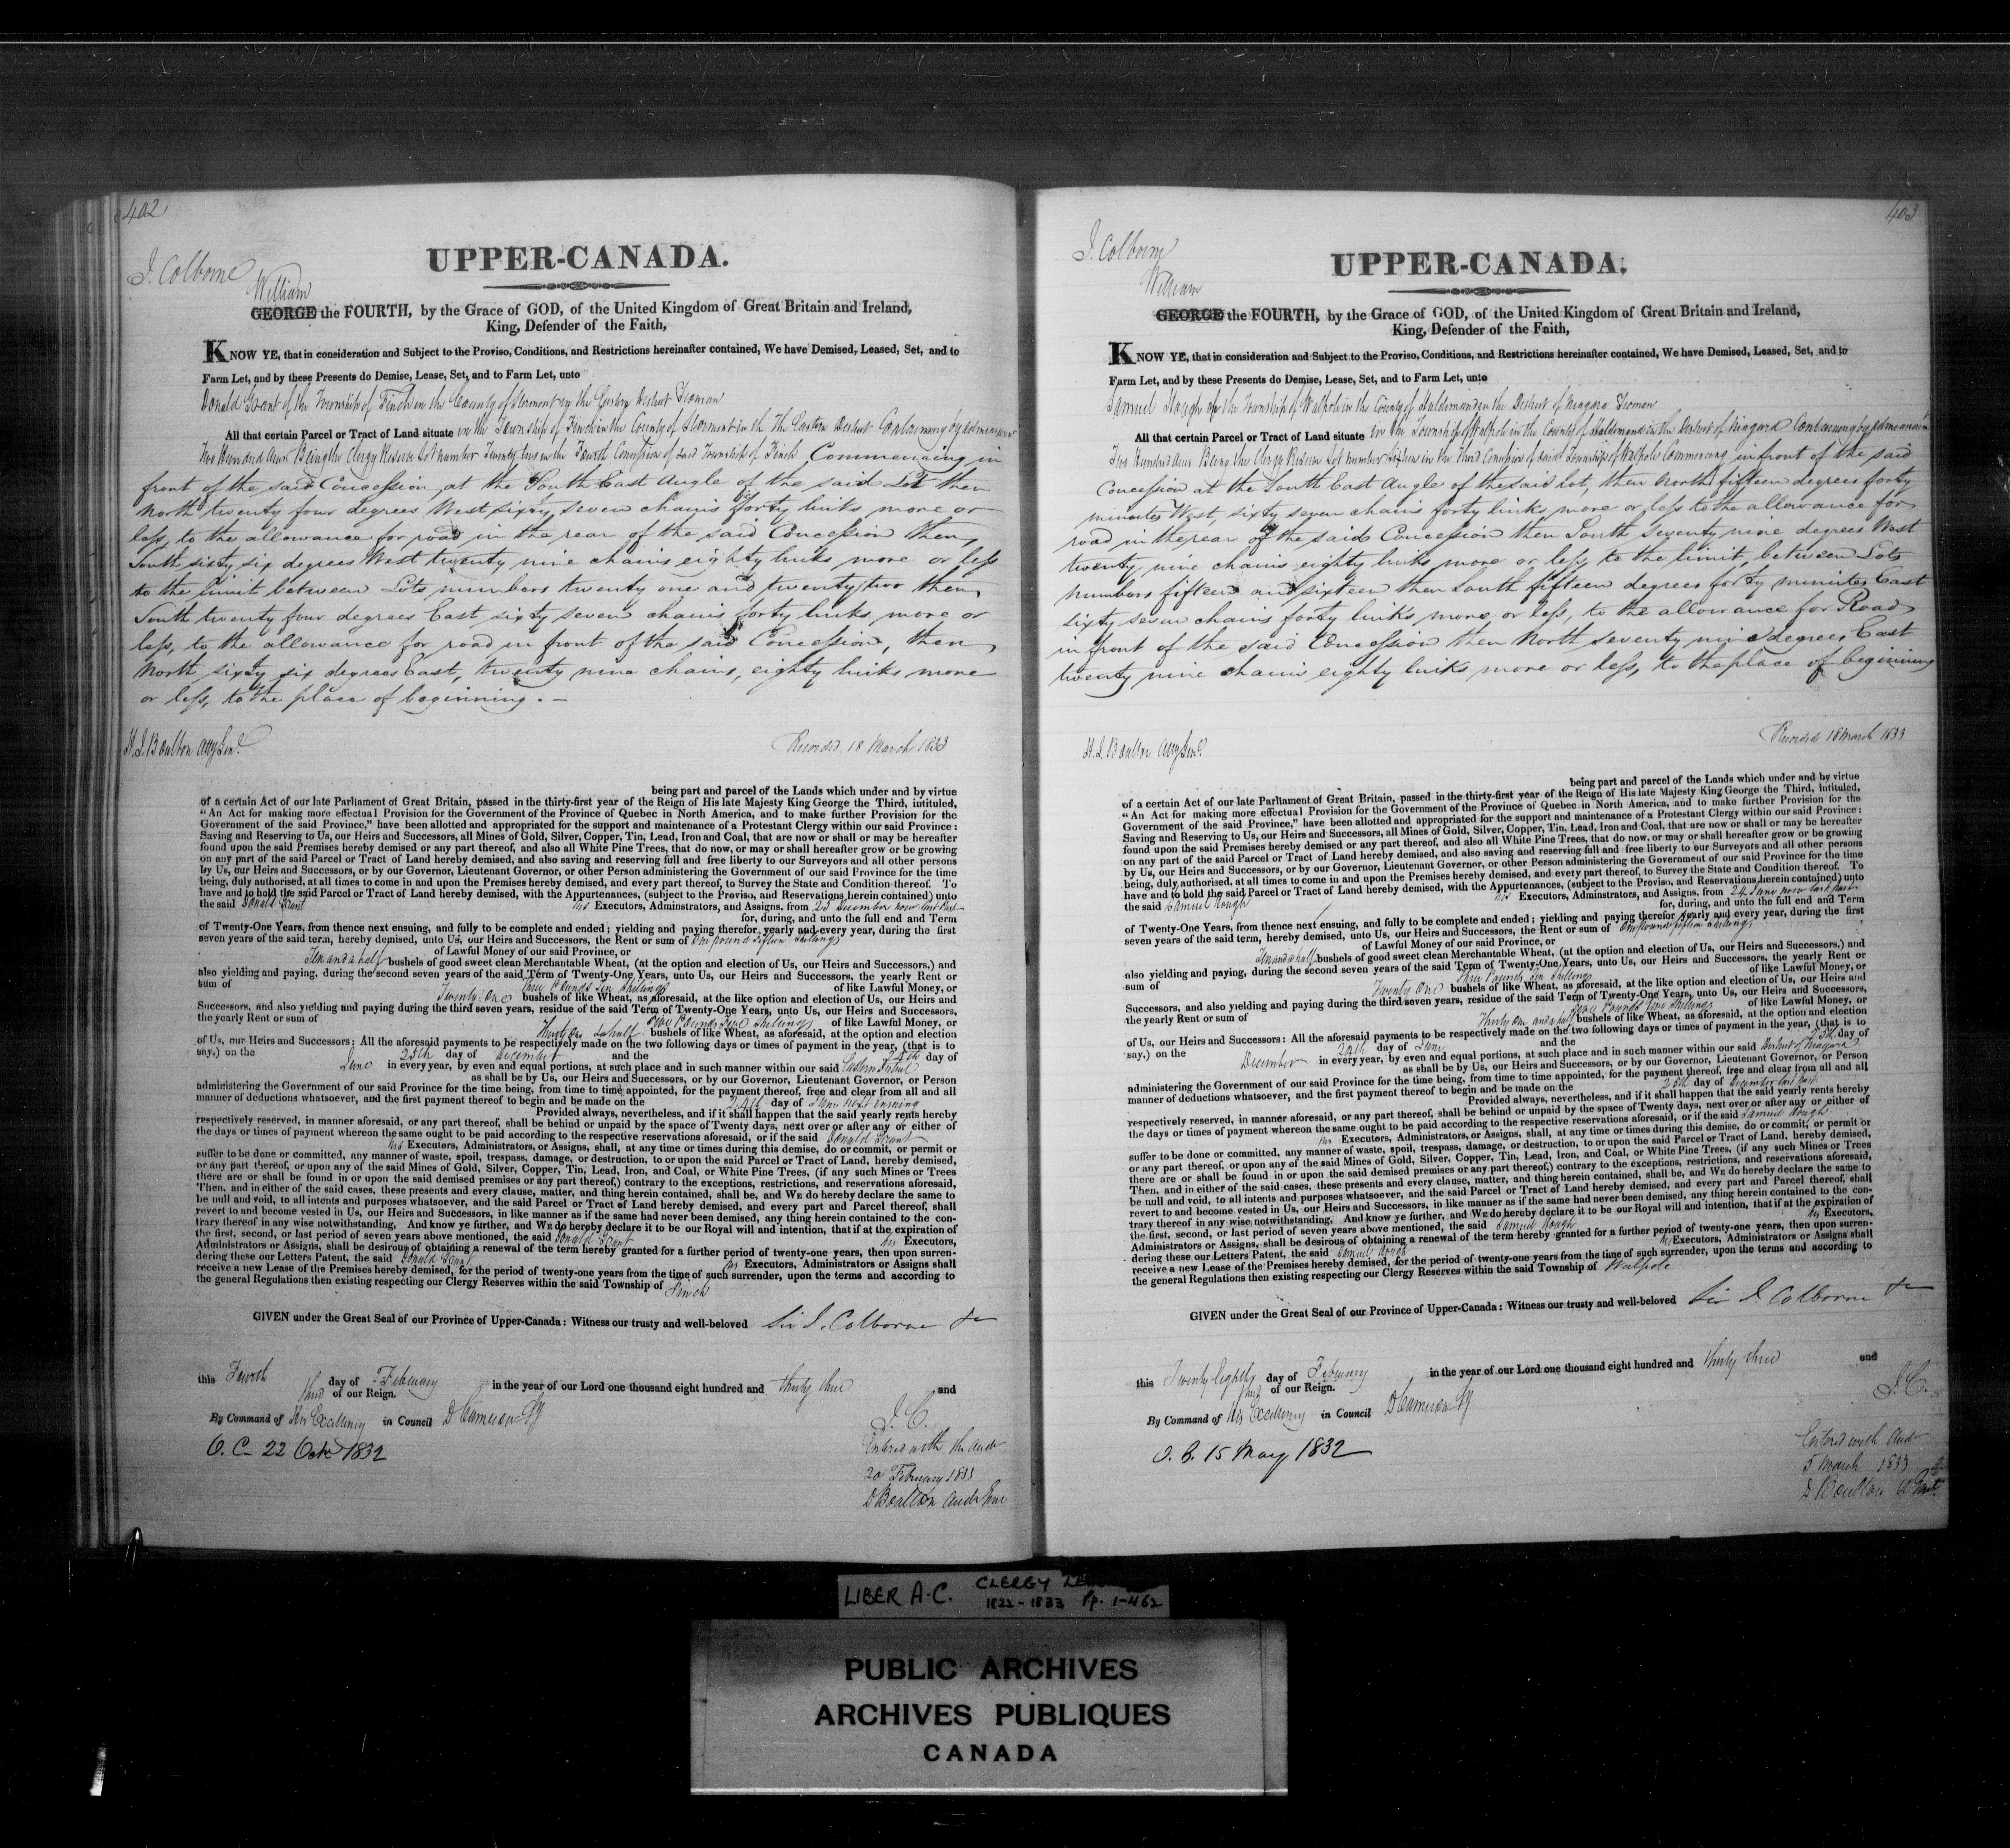 402
J. Colborne
UPPER-CANADA.
William
GEORGE the FOURTH, by the Grace of GOD, of the United Kingdom of Great Britain and Ireland,
King, Defender of the Faith,
KNOW YE, that in consideration and Subject to the Proviso, Conditions, and Restrictions hereinafter contained, We have Demised, Leased, Set, and to
Farm Let, and by these Presents do Demise, Lease, Set, and to Farm Let, unto
Donald Grant of the Township of Finch in the County of Stormont in the Eastern District Yeoman
All that certain Parcel or Tract of Land situate in the Township of Finch in the County of Stormont in the The Eastern District Containing by admeasurement
Two Hundred Acres Being the Clergy Reserve Lot number Twenty two in the Fourth Concession of said Township of Finch Commencing in
front of the said Concession, at the South East Angle of the said Lot then
North twenty four degrees West sixty seven chains forty links more or
less, to the allowance for road in the rear of the said Concession then,
South sixty six degrees West twenty nine chains eighty links more or less
to the limit between Lots numbers twenty one and twenty two then
South twenty four degrees East sixty seven chains forty links more or
less, to the allowance for road in front of the said Concession, then
North sixty six degrees East, twenty nine chains, eighty links more
or less, to the place of beginning. –
H. J. Boulton Atty Genl.
Recorded. 18 March 1833
being part and parcel of the Lands which under and by virtue
of a certain Act of our late Parliament of Great Britain, passed in the thirty-first year of the Reign of His late Majesty King George the Third, intituled,
"An Act for making more effectual Provision for the Government of the Province of Quebec in North America, and to make further Provision for the
Government of the said Province," have been allotted and appropriated for the support and maintenance of a Protestant Clergy within our said Province:
Saving and Reserving to Us, our Heirs and Successors, all Mines of Gold, Silver, Copper, Tin, Lead, Iron and Coal, that are now or shall or may be hereafter
found upon the said Premises hereby demised or any part thereof, and also all White Pine Trees, that do now, or may or shall hereafter grow or be growing
on any part of the said Parcel or Tract of Land hereby demised, and also saving and reserving full and free liberty to our Surveyors and all other persons
by Us, our Heirs and Successors, or by our Governor, Lieutenant Governor, or other Person administering the Government of our said Province for the time
being, duly authorised, at all times to come in and upon the Premises hereby demised, and every part thereof, to Survey the State and Condition thereof. To
have and to hold the said Parcel or Tract of Land hereby demised, with the Appurtenances, (subject to the Proviso, and Reservations herein contained) unto
the said Donald Grant his Executors, Adminstrators, and Assigns, from 25 December now last past
for, during, and unto the full end and Term
of Twenty-One Years, from thence next ensuing, and fully to be complete and ended; yielding and paying therefor, yearly and every year, during the first
seven years of the said term, hereby demised, unto Us, our Heirs and Successors, the Rent or sum of One pound fifteen Shillings
of Lawful Money of our said Province, or
Ten and a half bushels of good sweet clean Merchantable Wheat, (at the option and election of Us, our Heirs and Successors,) and
also yielding and paying, during the second seven years of the said Term of Twenty-One Years, unto Us, our Heirs and Successors, the yearly Rent or
sum of Three Pounds Ten Shillings of like Lawful Money, or
Twenty One bushels of like Wheat, as aforesaid, at the like option and election of Us, our Heirs and
Successors, and also yielding and paying during the third seven years, residue of the said Term of Twenty-One Years, unto Us, our Heirs and Successors,
the yearly Rent or sum of Five Pounds five Shillings of like Lawful Money, or
Thirty One & a half bushels of like Wheat, as aforesaid, at the option and election
of Us, our Heirs and Successors: All the aforesaid payments to be respectively made on the two following days or times of payment in the year, (that is to
say,) on the 25th day of December and the 24th day of
June in every year, by even and equal portions, at such place and in such manner within our said Eastern District
as shall be by Us, our Heirs and Successors, or by our Governor, Lieutenant Governor, or Person
administering the Government of our said Province for the time being, from time to time appointed, for the payment thereof, free and clear from all and all
manner of deductions whatsoever, and the first payment thereof to begin and be made on the 24th day of June next ensuing
Provided always, nevertheless, and if it shall happen that the said yearly rents hereby
respectively reserved, in manner aforesaid, or any part thereof, shall be behind or unpaid by the space of Twenty days, next over or after any or either of
the days or times of payment whereon the same ought to be paid according to the respective reservations aforesaid, or if the said Donald Grant
his Executors, Administrators, or Assigns, shall, at any time or times during this demise, do or commit, or permit or
suffer to be done or committed, any manner of waste, spoil, trespass, damage, or destruction, to or upon the said Parcel or Tract of Land, hereby demised,
or any part thereof, or upon any of the said Mines of Gold, Silver, Copper, Tin, Lead, Iron, and Coal, or White Pine Trees, (if any such Mines or Trees
there are or shall be found in or upon the said demised premises or any part thereof,) contrary to the exceptions, restrictions, and reservations aforesaid,
Then, and in either of the said cases, these presents and every clause, matter, and thing herein contained, shall be, and WE do hereby declare the same to
be null and void, to all intents and purposes whatsoever, and the said Parcel or Tract of Land hereby demised, and every part and Parcel thereof, shall
revert to and become vested in Us, our Heirs and Successors, in like manner as if the same had never been demised, any thing herein contained to the con-
trary thereof in any wise notwithstanding. And know ye further, and WE do hereby declare it to be our Royal will and intention, that if at the expiration of
the first, second, or last period of seven years above mentioned, the said Donald Grant his Executors,
Administrators or Assigns, shall be desirous of obtaining a renewal of the term hereby granted for a further period of twenty-one years, then upon surren-
dering these our Letters Patent, the said Donald Grant his Executors, Administrators or Assigns shall
receive a new Lease of the Premises hereby demised, for the period of twenty-one years from the time of such surrender, upon the terms and according to
the general Regulations then existing respecting our Clergy Reserves within the said Township of Finch
GIVEN under the Great Seal of our Province of Upper-Canada: Witness our trusty and well-beloved Sir J. Colborne &c
this Fourth day of February in the year of our Lord one thousand eight hundred and thirty three and
third of our Reign.
By Command of His Excellency in Council D Cameron Sy
J. C.
O. C– 22 Octr 1832
Entered with the Audr
20 February 1833
D Boulton Audr Genl
403
J. Colborne
UPPER-CANADA.
William
GEORGE the FOURTH, by the Grace of GOD, of the United Kingdom of Great Britain and Ireland,
King, Defender of the Faith,
KNOW YE, that in consideration and Subject to the Proviso, Conditions, and Restrictions hereinafter contained, We have Demised, Leased, Set, and to
Farm Let, and by these Presents do Demise, Lease, Set, and to Farm Let, unto
Samuel Hough of the Township of Walpole in the County of Haldimand in the District of Niagara Yeoman
All that certain Parcel or Tract of Land situate in the Township of Walpole in the County of Haldimand in the District of Niagara Containing by admeasurement
Two Hundred Acres Being the Clergy Reserve Lot number Sixteen in the Third Concession of said Township of Walpole Commencing in front of the said
Concession at the South East Angle of the said Lot, then North fifteen degrees forty
minutes West, sixty seven chains forty links more or less to the allowance for
road in the rear of the said Concession then South Seventy nine degrees West
twenty nine chains eighty links more or less, to the limit, between Lots
numbers fifteen and sixteen then South fifteen degrees forty minutes East
sixty seven chains forty links more or less, to the allowance for Road
in front of the said Concession then North seventy nine degrees East
twenty nine chains eighty links more or less, to the place of beginning
H. J. Boulton Atty Genl.
Recorded 18 March 1833
being part and parcel of the Lands which under and by virtue
of a certain Act of our late Parliament of Great Britain, passed in the thirty-first year of the Reign of His late Majesty King George the Third, intituled,
"An Act for making more effectual Provision for the Government of the Province of Quebec in North America, and to make further Provision for the
Government of the said Province," have been allotted and appropriated for the support and maintenance of a Protestant Clergy within our said Province:
Saving and Reserving to Us, our Heirs and Successors, all Mines of Gold, Silver, Copper, Tin, Lead, Iron and Coal, that are now or shall or may be hereafter
found upon the said Premises hereby demised or any part thereof, and also all White Pine Trees, that do now, or may or shall hereafter grow or be growing
on any part of the said Parcel or Tract of Land hereby demised, and also saving and reserving full and free liberty to our Surveyors and all other persons
by Us, our Heirs and Successors, or by our Governor, Lieutenant Governor, or other Person administering the Government of our said Province for the time
being, duly authorised, at all times to come in and upon the Premises hereby demised, and every part thereof, to Survey the State and Condition thereof. To
have and to hold the said Parcel or Tract of Land hereby demised, with the Appurtenances, (subject to the Proviso, and Reservations herein contained) unto
the said Samuel Hough his Executors, Adminstrators, and Assigns, from 24 June now last past
for, during, and unto the full end and Term
of Twenty-One Years, from thence next ensuing, and fully to be complete and ended; yielding and paying therefor yearly and every year, during the first
seven years of the said term, hereby demised, unto Us, our Heirs and Successors, the Rent or sum of One Pound fifteen Shillings
of Lawful Money of our said Province, or
Ten and a half bushels of good sweet clean Merchantable Wheat, (at the option and election of Us, our Heirs and Successors,) and
also yielding and paying, during the second seven years of the said Term of Twenty-One Years, unto Us, our Heirs and Successors, the yearly Rent or
sum of Three Pounds Ten Shillings of like Lawful Money, or
Twenty One bushels of like Wheat, as aforesaid, at the like option and election of Us, our Heirs and
Successors, and also yielding and paying during the third seven years, residue of the said Term of Twenty-One Years, unto Us, our Heirs and Successors,
the yearly Rent or sum of Five Pounds five Shillings of like Lawful Money, or
Thirty One and a half bushels of like Wheat, as aforesaid, at the option and election
of Us, our Heirs and Successors: All the aforesaid payments to be respectively made on the two following days or times of payment in the year, (that is to
say,) on the 24th day of June and the 25th day of
December in every year, by even and equal portions, at such place and in such manner within our said District of Niagara
as shall be by Us, our Heirs and Successors, or by our Governor, Lieutenant Governor, or Person
administering the Government of our said Province for the time being, from time to time appointed, for the payment thereof, free and clear from all and all
manner of deductions whatsoever, and the first payment thereof to begin and be made on the 25th day of December last past
Provided always, nevertheless, and if it shall happen that the said yearly rents hereby
respectively reserved, in manner aforesaid, or any part thereof, shall be behind or unpaid by the space of Twenty days, next over or after any or either of
the days or times of payment whereon the same ought to be paid according to the respective reservations aforesaid, or if the said Samuel Hough
his Executors, Administrators, or Assigns, shall, at any time or times during this demise, do or commit, or permit or
suffer to be done or committed, any manner of waste, spoil, trespass, damage, or destruction, to or upon the said Parcel or Tract of Land, hereby demised,
or any part thereof, or upon any of the said Mines of Gold, Silver, Copper, Tin, Lead, Iron, and Coal, or White Pine Trees, (if any such Mines or Trees
there are or shall be found in or upon the said demised premises or any part thereof,) contrary to the exceptions, restrictions, and reservations aforesaid,
Then, and in either of the said cases, these presents and every clause, matter, and thing herein contained, shall be, and WE do hereby declare the same to
be null and void, to all intents and purposes whatsoever, and the said Parcel or Tract of Land hereby demised, and every part and Parcel thereof, shall
revert to and become vested in Us, our Heirs and Successors, in like manner as if the same had never been demised, any thing herein contained to the con-
trary thereof in any wise notwithstanding. And know ye further, and WE do hereby declare it to be our Royal will and intention, that if at the expiration of
the first, second, or last period of seven years above mentioned, the said Samuel Hough his Executors,
Administrators or Assigns, shall be desirous of obtaining a renewal of the term hereby granted for a further period of twenty-one years, then upon surren-
dering these our Letters Patent, the said Samuel Hough his Executors, Administrators or Assigns shall
receive a new Lease of the Premises hereby demised, for the period of twenty-one years from the time of such surrender, upon the terms and according to
the general Regulations then existing respecting our Clergy Reserves within the said Township of Walpole
GIVEN under the Great Seal of our Province of Upper-Canada: Witness our trusty and well-beloved Sir J. Colborne &c
this Twenty Eighth day of February in the year of our Lord one thousand eight hundred and thirty three and
third of our Reign.
By Command of His Excellency in Council D Cameron Sy
J. C.
O. C. 15 May 1832
Entered with Audr
5 March 1833
D Boulton
LIBER A.C. CLERGY
1822-1833 Pp. 1-462
PUBLIC ARCHIVES
ARCHIVES PUBLIQUES
CANADA